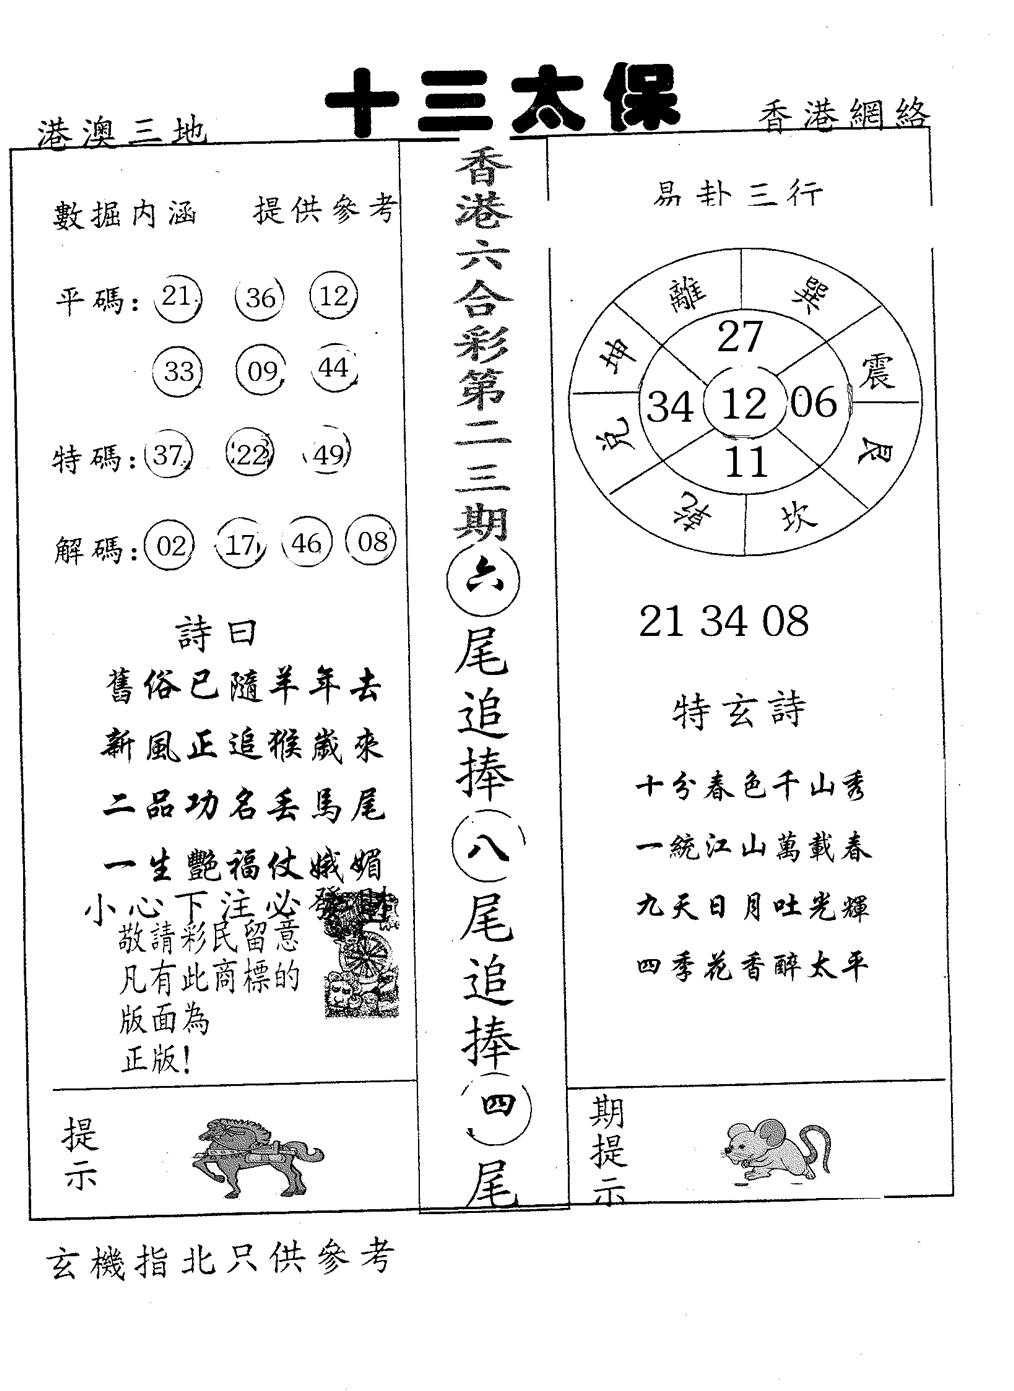 十三太保
港澳三地
香港網絡
數掘内涵 提供參考
平碼: 21 36 12
33 09 44
特碼: 37 22 49
解碼: 02 17 46 08
詩曰
舊俗已隨羊年去
新風正追猴歲來
二品功名丢馬尾
一生艷福仗娥媚
小心下注必發財
敬請彩民留意
凡有此商標的
版面為
正版!
提示
香港六合彩第二三期
六尾追捧八尾追捧四尾
易卦三行
離 巽
坤 震
兌 艮
乾 坎
27
34 12 06
11
21 34 08
特玄詩
十分春色千山秀
一統江山萬載春
九天日月吐光輝
四季花香醉太平
期提示
玄機指北只供參考